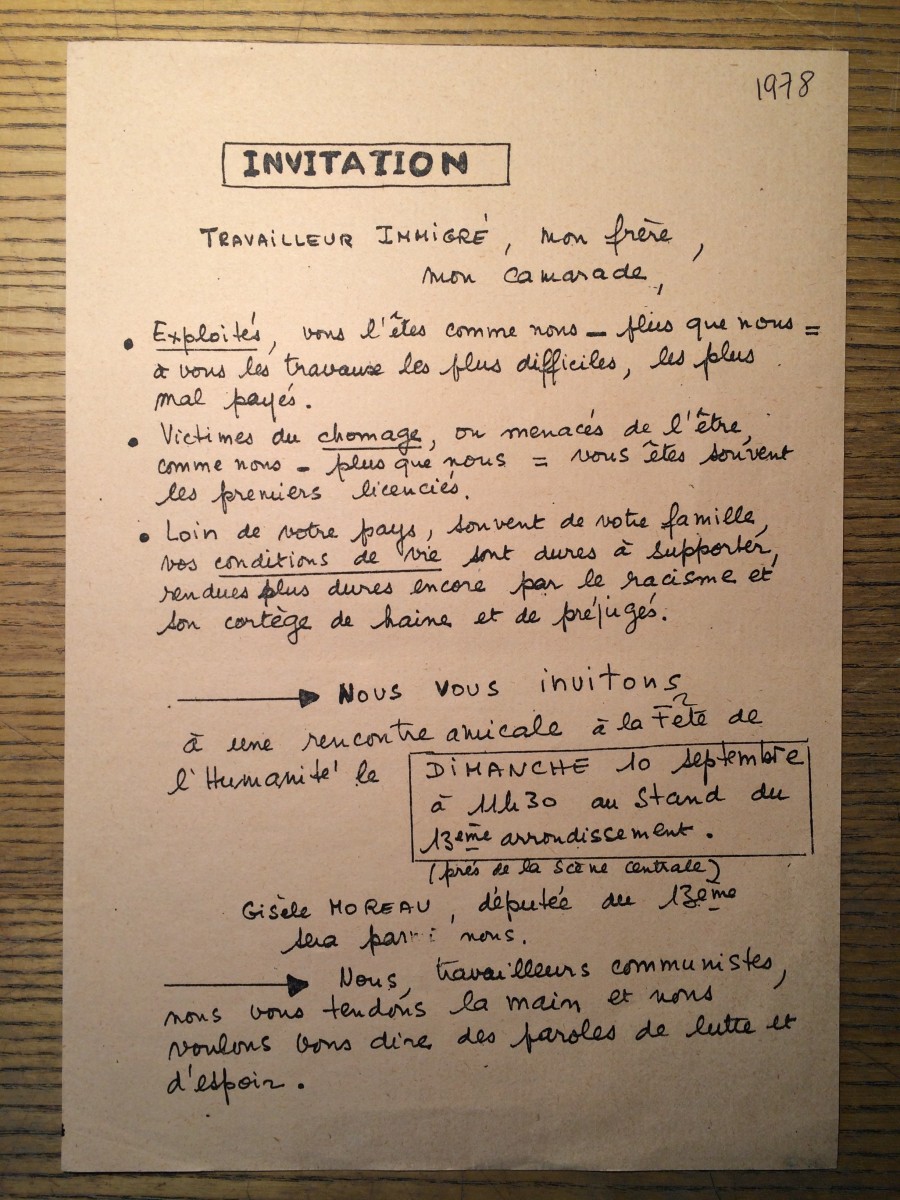 1978
INVITATION
TRAVAILLEUR IMMIGRÉ, mon frère,
mon camarade,
• Exploités, vous l'êtes comme nous - plus que nous =
à vous les travaux les plus difficiles, les plus
mal payés.
• Victimes du chomage, ou menacés de l'être,
comme nous - plus que nous = vous êtes souvent
les premiers licenciés.
• Loin de votre pays, souvent de votre famille,
vos conditions de vie sont dures à supporter,
rendues plus dures encore par le racisme et
son cortège de haine et de préjugés.
→ NOUS VOUS invitons
à une rencontre amicale à la Fête de
l'Humanité le
DIMANCHE 10 septembre
à 11h30 au Stand du
13ème arrondissement.
(près de la Scène centrale)
Gisèle MOREAU, députée du 13ème
sera parmi nous.
→ Nous, travailleurs communistes,
nous vous tendons la main et nous
voulons vous dire des paroles de lutte et
d'espoir.